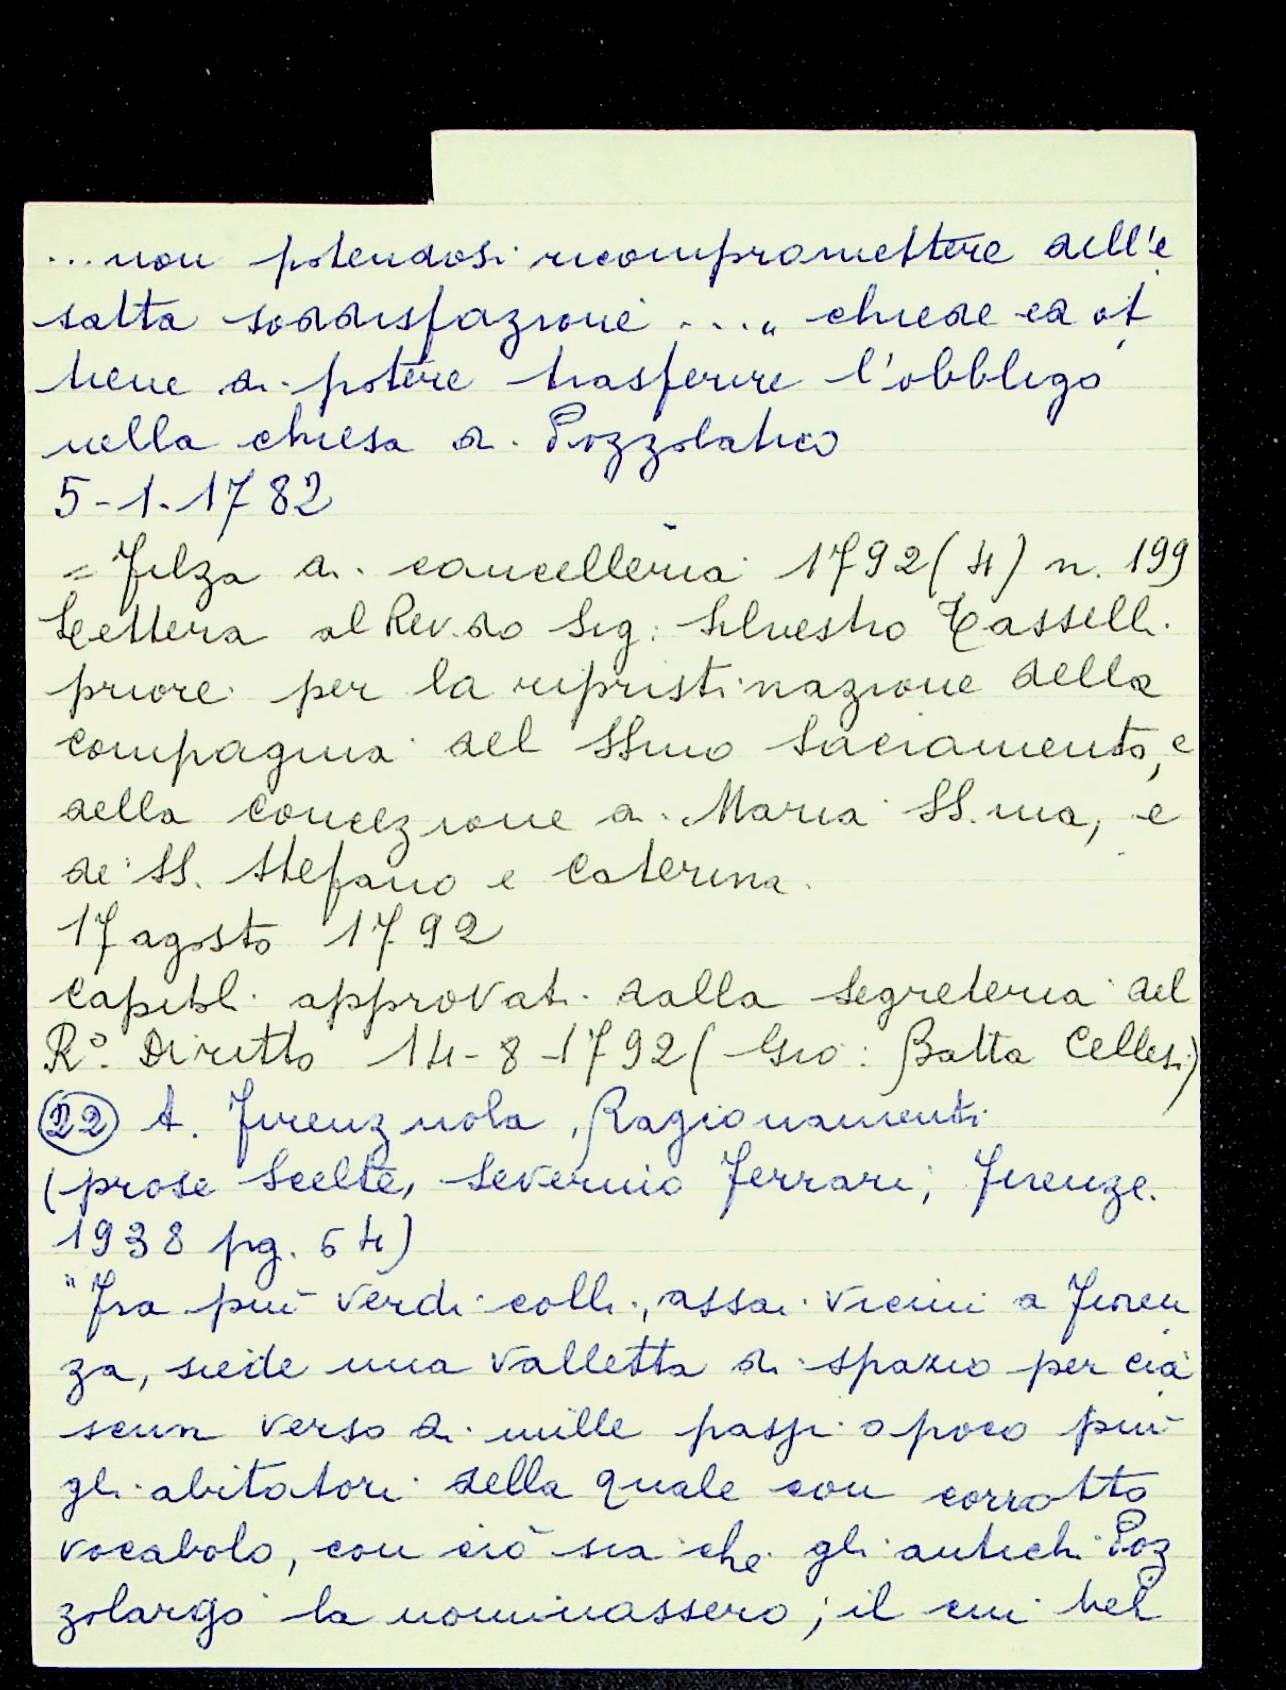 ...non potendosi ricompromettere dell'e
satta soddisfazione ...„ chiede ed ot
tiene di potere trasferire l'obbligo
nella chiesa di Pozzolatico
5-1-1782
= Filza di cancelleria 1792(4) n. 199
Lettera al Rev.do Sig: Silvestro Casselli
priore per la ripristinazione della
compagnia del SSmo Sacramento, e
della Concezione di Maria SS.ma, e
de' SS. Stefano e Caterina.
17 agosto 1792
Capitoli approvati dalla Segreteria del
R°. Diritto 14-8-1792 (Gio: Batta Cellesi)
22 A. Firenzuola, Ragionamenti
(prose scelte, Severino Ferrari, Firenze.
1938 pg. 54)
"Fra più verdi colli, assai vicini a Firen
za, siede una valletta di spazio per cia
scun verso di mille passi o poco più
gli abitatori della quale con corrotto
vocabolo, con ciò sia che gli antichi Poz
zolargo la nominassero; il cui bel